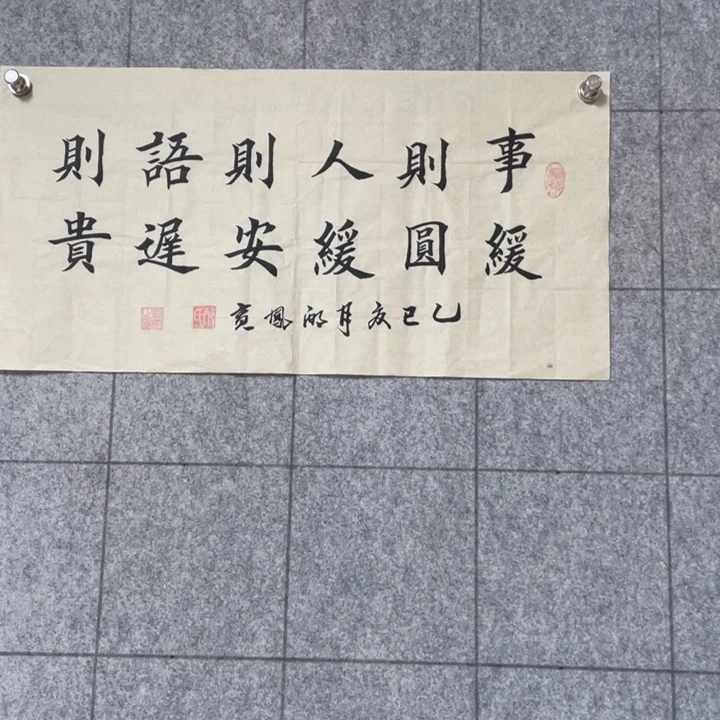 事緩
則圓
人緩
則安
語遲
則貴
乙巳夏月